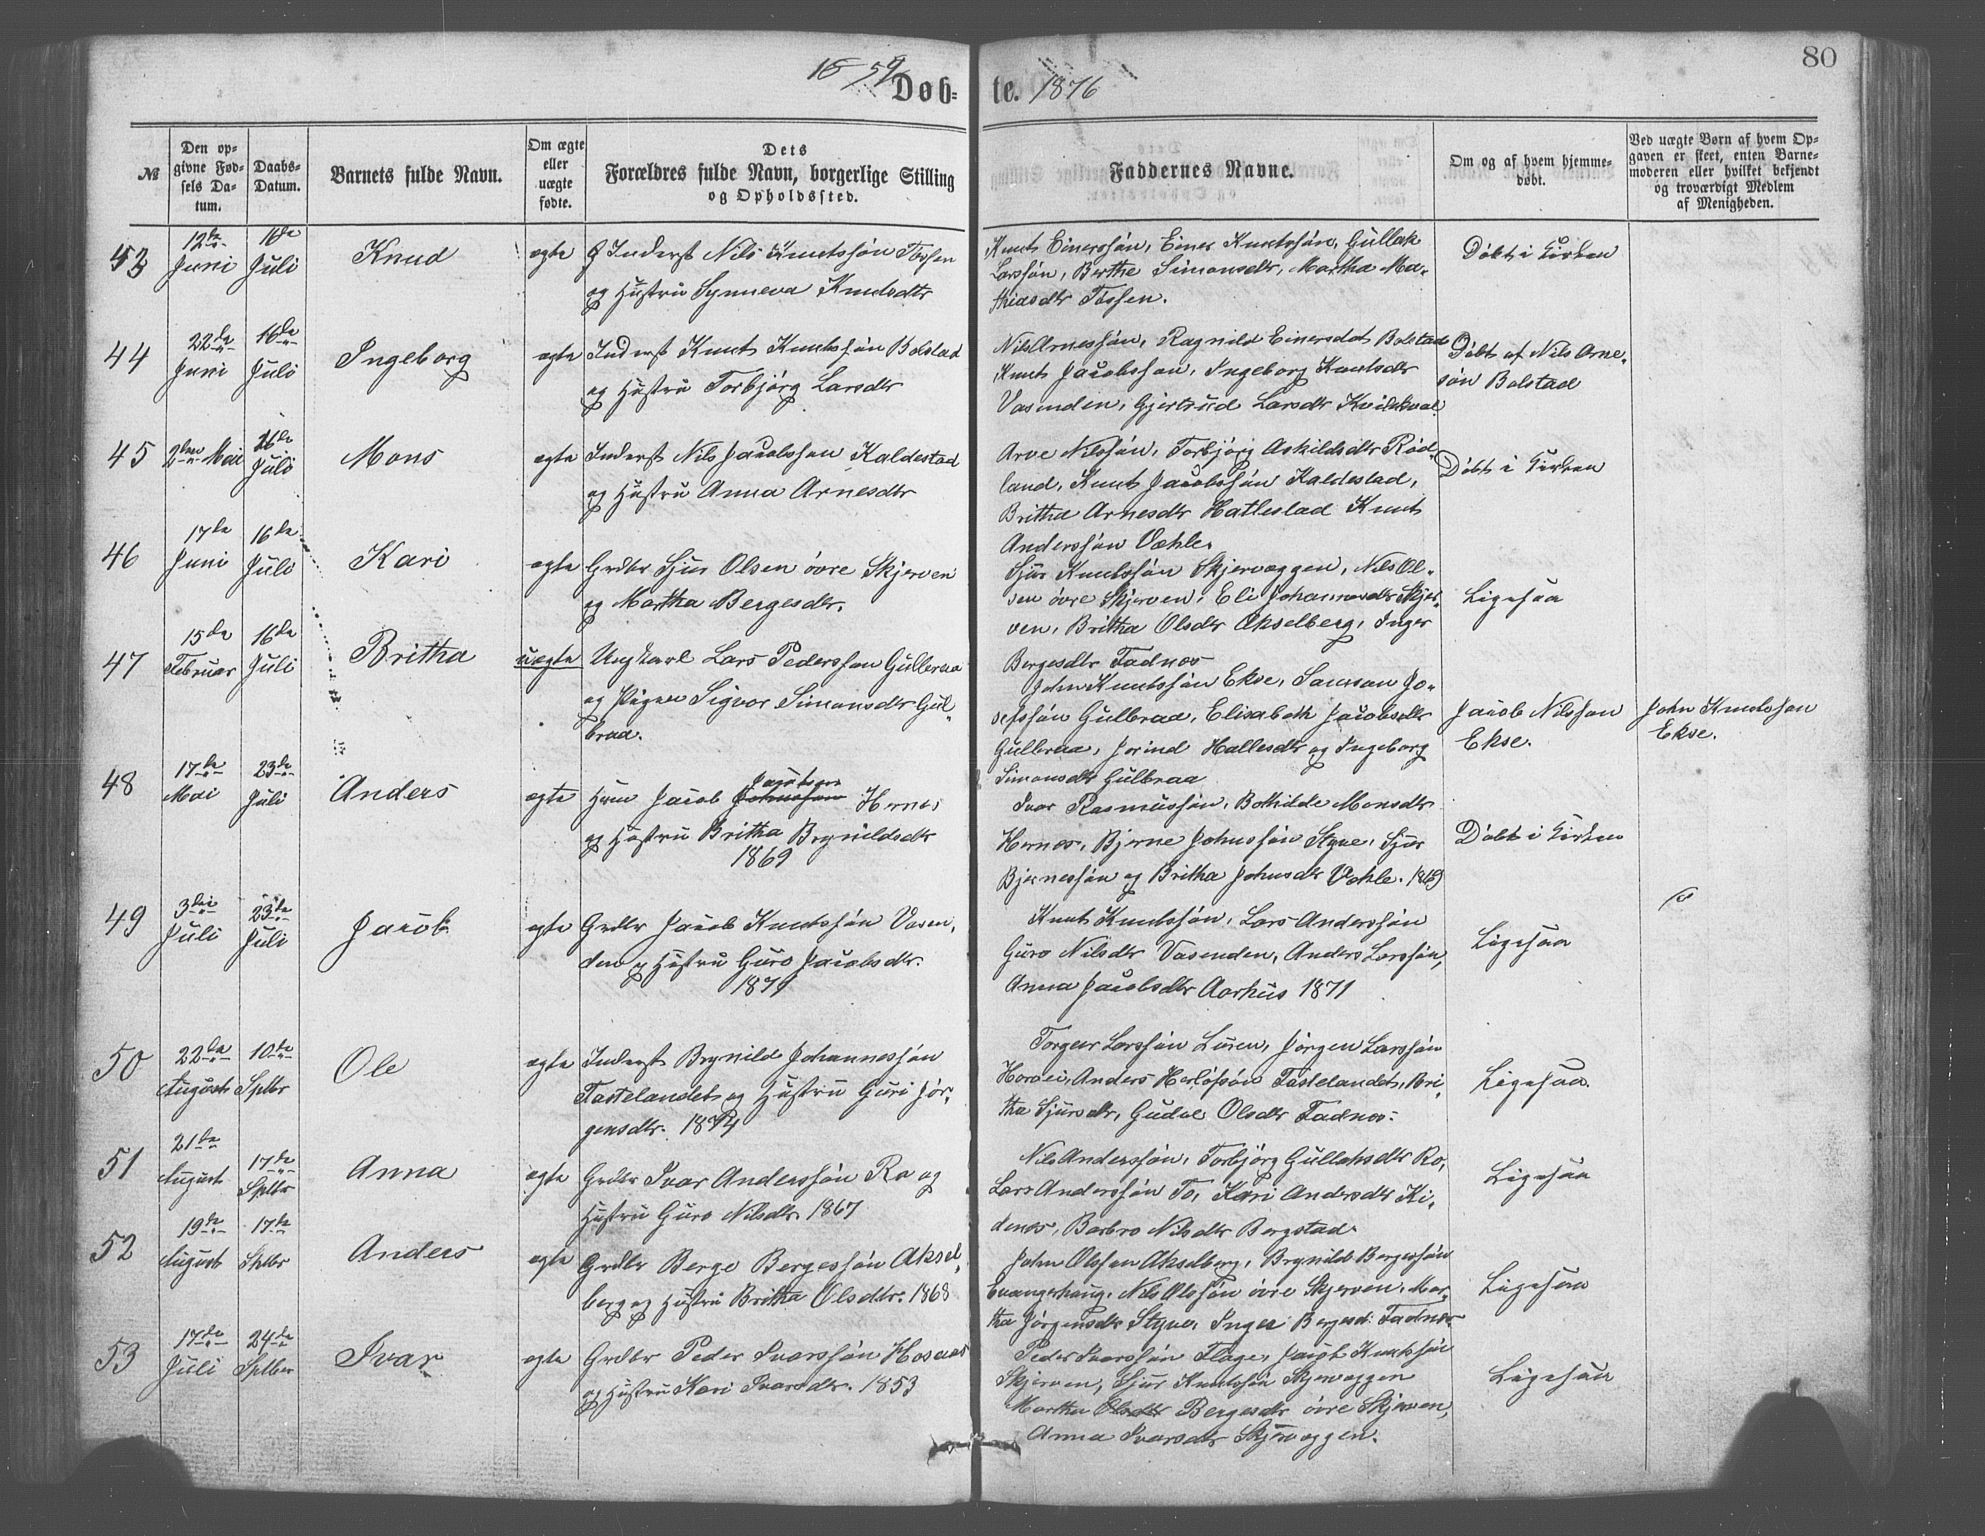 80
15/59
Døb-
te. 1876
№
Den op-
givne Fød-
sels Da-
tum.
Daabs-
Datum.
Barnets fulde Navn.
Om ægte
eller
uægte
fødte.
Dets
Forældres fulde Navn, borgerlige Stilling
og Opholdssted.
Faddernes Navne.
Om og af hvem hjemme-
døbt.
Ved uægte Børn af hvem Op-
gaven er skeet, enten Barne-
moderen eller hvilket bekjendt
og troværdigt Medlem
af Menigheden.
43
12de
Juni
16de
Juli
Knud
ægte
Inderst Nils Knutssøn Tøssen
og Hustru Synneva Knudsdtr
Knut Einerssøn, Einer Knutssøn, Gullak
Larssøn, Berthe Simonsdtr, Martha Ma-
thiasdtr Tøssen.
Døbt i Kirken
44
22de
Juni
16de
Juli
Ingeborg
ægte
Inderst Knut Knutssøn Bolstad
og Hustru Torbjørg Larsdtr
Nils Arnessøn, Ragnild Einersdat Bolstad
Knut Jacobsson, Ingeborg Knutsdtr
Vasenden, Gjertrud Larsdtr
Døbt af Nils Arne-
søn Bolstad
45
2den Mai
16de
Juli
Mons
ægte
Inderst Nils Jacobsson Kaldestad
og Hustru Anna Arnesdtr
Arve Nilssøn, Torbjørg Askildsdtr Rød-
land, Knut Jacobssøn Kaldestad,
Britha Arnesdtr Hatlestad Knut
Anderssøn Væhle.
Døbt i Kirken
46
17de
Juni
16de
Juli
Kari
ægte
Grdbr Sjur Olsen øvre Skjerven
og Martha Bergesdtr.
Sjur Knutssøn Skjervæggen, Nils Ol-
sen øvre Skjerven, Eli Johannesdtr Skjer-
ven, Britha Olsdtr Akselberg, Inger
Bergesdtr Fadnes
Ligesaa
47
15de
Februar
16de
Juli
Britha
uægte
Ungkarl Lars Pederssøn Gulbraa
og Pigen Sigvor Simonsdtr Gul-
braa.
John Knutssøn Ekse, Samson Jo-
sefssøn Gulbraa, Elisabeth Jacobsdtr
Gulbraa, Jorind Hallesdtr og Ingeborg
Simonsdtr Gulbraa
Jacob Nilsson
Ekse.
John Knutsson
Ekse.
48
17de
Mai
23de
Juli
Anders
ægte
Hmn Jacob Johnssøn Jacobsen Hernes
og Hustru Britha Brynildsdtr
1869
Ivar Rasmussøn, Bothilde Monsdtr
Hernes, Bjerne Johnssøn Styve, Sjur
Bjernessøn og Britha Johnsdtr Væhle. 1869
Døbt i Kirken
49
3die
Juli
23de
Juli
Jacob
ægte
Grdbr Jacob Knutssøn Vasen-
den og Hustru Guro Jacobsdtr.
1871
Knut Knutssøn, Lars Anderssøn
Guro Nilsdtr Vasenden, Anders Larssøn,
Anna Jacobsdtr Aarhus 1871
Ligesaa
50
22de
August
10de
Sptbr
Ole
ægte
Inderst Brynild Johannessøn
Fastelandet og Hustru Guri Jør-
gensdtr. 1874
Torgeir Larssøn Luren, Jørgen Larssøn
Horvei, Anders Herlofssøn Fastelandet, Bri-
tha Sjursdtr, Gudve Olsdtr Fadnes.
Ligesaa.
51
21de
August
17de
Sptbr
Anna
ægte
Grdbr Ivar Anderssøn Ro og
Hustru Guro Nilsdtr 1867
Nils Anderssøn, Torbjørg Gullaksdtr Ro,
Lars Anderssøn To, Kari Andersdtr Ki-
denes, Barbro Nilsdtr Bergstad
Ligesaa
52
19de
August
17de
Sptbr
Anders
ægte
Grdbr Berge Bergessøn Aksel-
berg og Hustru Britha Olsdtr. 1868
John Olssøn Akselberg, Brynild Bergessøn
Evangerhaug, Nils Olssøn øvre Skjerven, Mar-
tha Jørgensdtr Styve, Inger Bergesd. Fadnes
Ligesaa
53
17de
Juli
24de
Sptber
Ivar
ægte
Grdbr Peder Ivarssøn Hosaas
og Hustru Kari Ivarsdtr. 1853
Peder Ivarssøn Flage, Jacob Knutssøn
Skjerven, Sjur Knutssøn Skjervæggen
Martha Olsdtr Bergesdtr øvre Skjerven,
Anna Ivarsdtr Skjervæggen.
Ligesaa